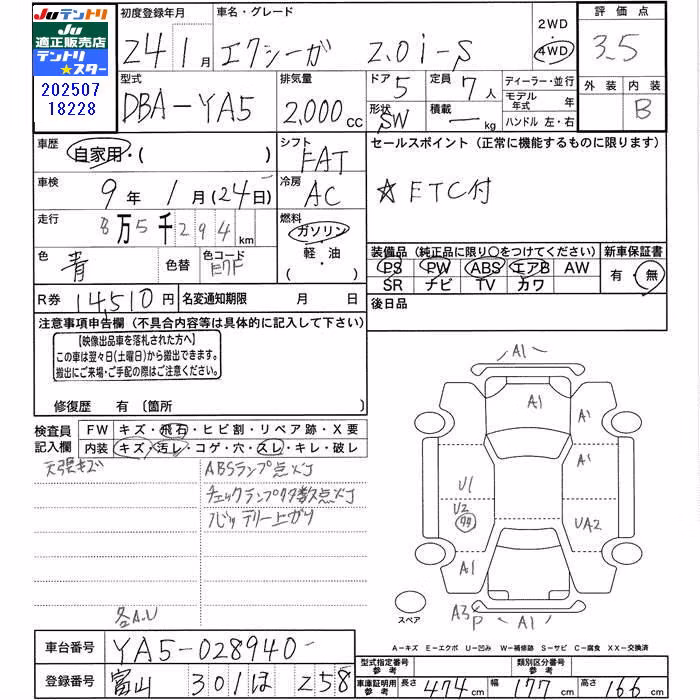 Juテントリ
Ju
適正販売店
テントリ
★スター
202507
18228
初度登録年月
24年1月
車名・グレード
エクシーガ 2.0i-S
2WD
4WD
評価点
3.5
外装 内装
B
型式
DBA-YA5
排気量
2,000cc
ドア 5
形状 SW
定員 7人
積載 ー kg
ディーラー・並行
モデル年式 年
ハンドル 左・右
車歴
自家用・( )
シフト
FAT
セールスポイント（正常に機能するものに限ります）
☆ETC付
車検
9年1月(24日)
冷房
AC
走行
8万5千294km
燃料
ガソリン
軽・油
( )
色
青
色替
色コード
E7F
装備品（純正品に限り○をつけてください）
PS PW ABS エアB AW
SR ナビ TV カワ
新車保証書
有・無
R券 14,510円
名変通知期限 月 日
後日品
注意事項申告欄（不具合内容等は具体的に記入して下さい）
【映像出品車を落札された方へ】
この車は翌々日(土曜日)から搬出できます。
搬出にご来場・ご手配の際はご注意ください。
修復歴 有〔箇所
検査員
記入欄
FW キズ・飛石・ヒビ割・リペア跡・X要
内装 キズ・汚レ・コゲ・穴・スレ・キレ・破レ
天張キズ
ABSランプ点灯
チェックランプ多数点灯
バッテリー上がり
各A.U
A1
A1
A1
A1
U1
U2
UA2
A1
A3
P
A1
スペア
A－キズ E－エクボ U－凹み W－補修跡 S－サビ C－腐食 XX－交換済
車台番号 YA5-028940-
登録番号 富山 301 ほ 258
型式指定番号
参考
類別区分番号
参考
車庫証明用
参考
長さ 474cm 幅 177cm 高さ 166cm